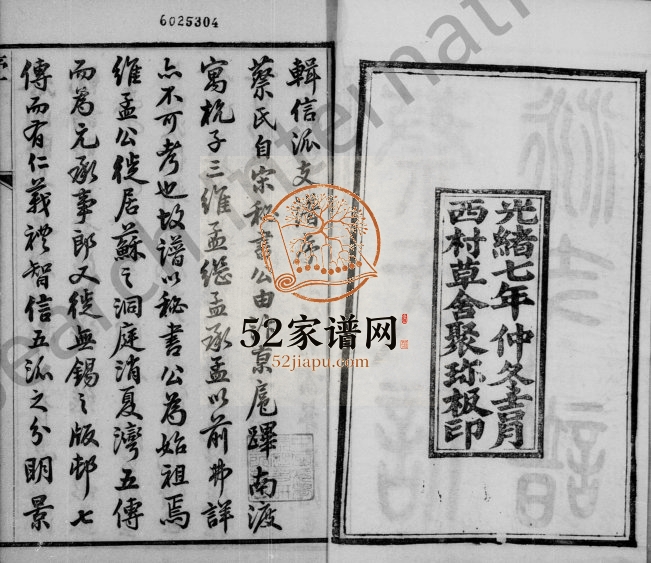 6025304
光緒七年仲冬
西村草舍聚珍板印
輯信派支譜序
蔡氏自宗秘書公由
扈蹕南渡
寓杭子三維孟繼孟承孟以前弗詳
亦不可考也故譜以秘書公為始祖焉
維孟公徙居蘇之洞庭消夏灣五傳
而為元承事郎又徙無錫之版邨七
傳而有仁義禮智信五派之分明景
52家谱网
52jiapu.com